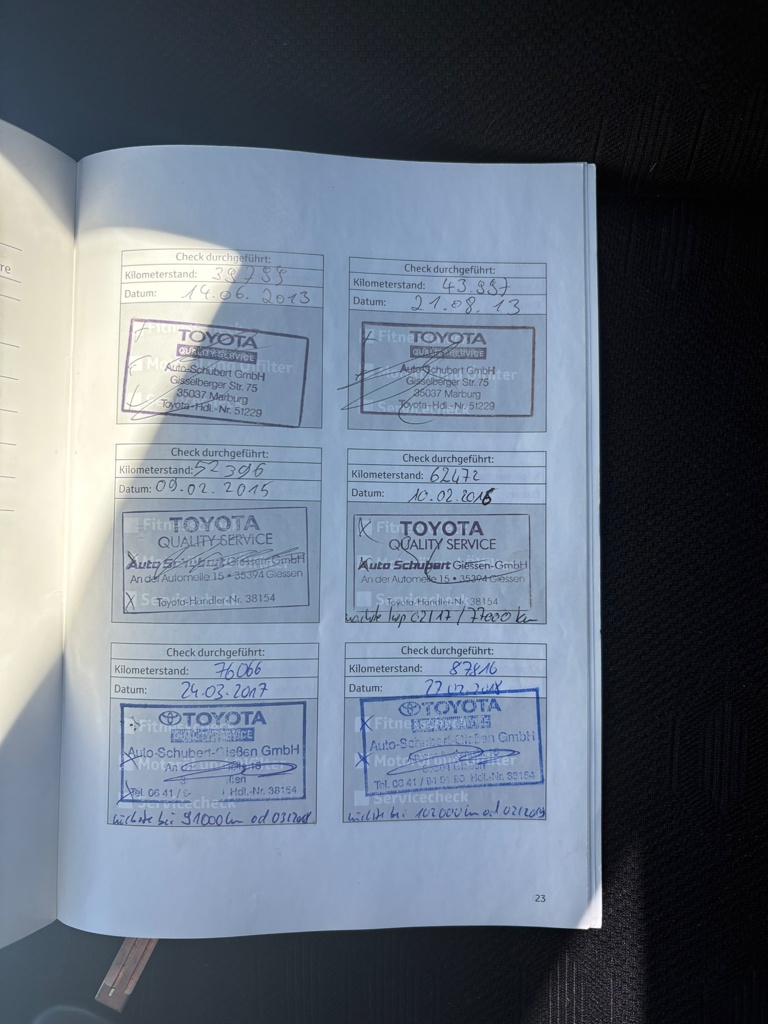 re
Check durchgeführt:
Kilometerstand: 39799
Datum: 14.06.2013
TOYOTA
QUALITY SERVICE
Motoröl und Ölfilter
Auto-Schubert GmbH
Gisselberger Str. 75
35037 Marburg
Toyota-Hdl.-Nr. 51229
Check durchgeführt:
Kilometerstand: 43.997
Datum: 21.08.13
TOYOTA
QUALITY SERVICE
Auto-Schubert GmbH
Gisselberger Str. 75
35037 Marburg
Toyota-Hdl.-Nr. 51229
Check durchgeführt:
Kilometerstand: 52396
Datum: 09.02.2015
TOYOTA
QUALITY SERVICE
Auto Schubert Giessen-GmbH
An der Automeile 15 • 35394 Giessen
Servicecheck
Toyota-Händler-Nr. 38154
Check durchgeführt:
Kilometerstand: 62472
Datum: 10.02.2016
X TOYOTA
QUALITY SERVICE
Auto Schubert Giessen-GmbH
An der Automeile 15 • 35394 Giessen
Toyota-Händler-Nr. 38154
nächste Insp 02/17 / 77000 km
Check durchgeführt:
Kilometerstand: 76066
Datum: 24.03.2017
TOYOTA
QUALITY SERVICE
Auto-Schubert-Gießen GmbH
Tel. 06 41 / Hdl.-Nr. 38154
Servicecheck
nächste bei 91000 km od 03/2018
Check durchgeführt:
Kilometerstand: 87816
Datum: 27.02.2018
TOYOTA
Auto-Schubert-Gießen GmbH
Hdl.-Nr. 38154
Servicecheck
nächste bei 102000 km od 02/2019
23